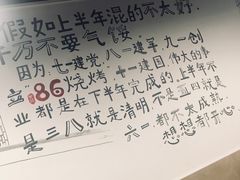 假如上半年混的不太好.
千万不要气馁
因为:七一建党,八一建军,九一创
立"86"烧烤.十一建国.伟大的事
业都是在下半年完成的上半年不
是三八就是清明不是五四就是
六一 都不太成熟.
想想都开心